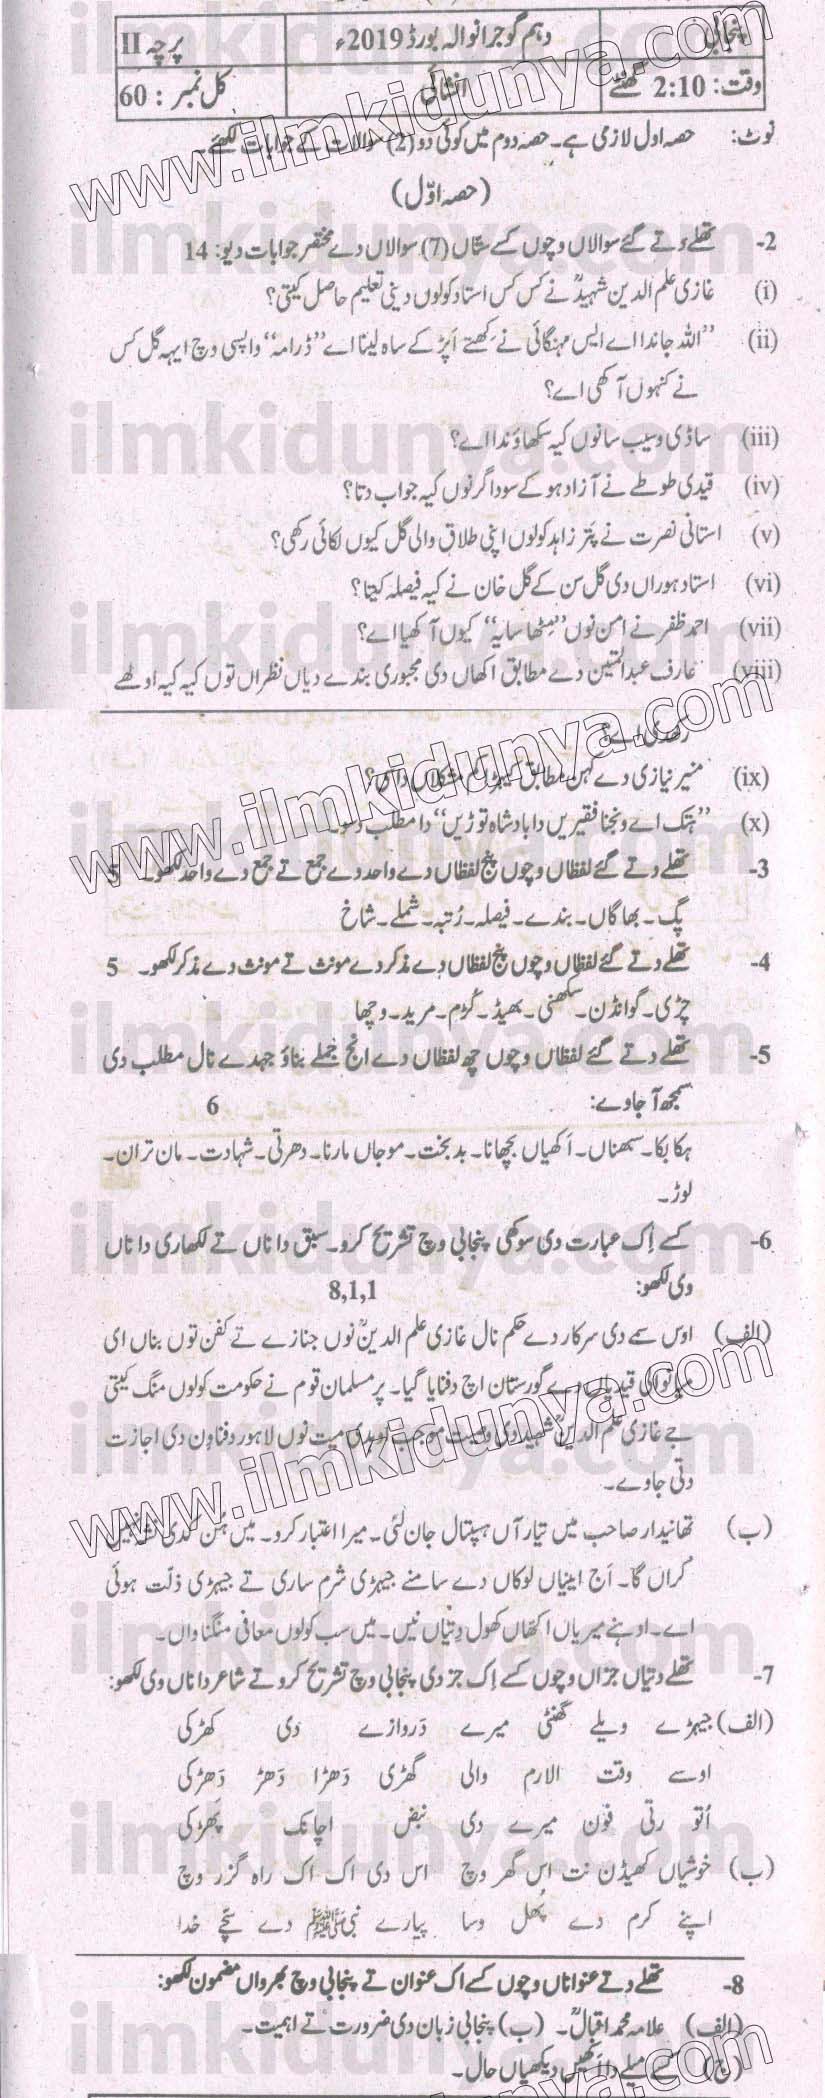 پنجابی دہم گوجرانوالہ بورڈ 2019ء پرچہ II
وقت: 2:10 گھنٹے انشائی کل نمبر: 60
نوٹ: حصہ اول لازمی ہے۔ حصہ دوم میں کوئی دو (2) سوالات کے جوابات لکھئے۔
(حصہ اوّل)
2- تھلے دتے گئے سوالاں وچوں کسے ستّاں (7) سوالاں دے مختصر جوابات دیو: 14
(i) غازی علم الدین شہیدؒ نے کس کس استاد کولوں دینی تعلیم حاصل کیتی؟
(ii) "اللہ جاندا اے ایس مہنگائی نے کھتے اَپڑ کے ساہ لینا اے" ڈرامہ "واپسی" وچ ایہہ گل کس
نے کنہوں آکھی اے؟
(iii) ساڈی وسیب سانوں کیہ سکھاؤندا اے؟
(iv) قیدی طوطے نے آزاد ہو کے سوداگر نوں کیہ جواب دتا؟
(v) استانی نصرت نے پتر زاہد کولوں اپنی طلاق والی گل کیوں لکائی رکھی؟
(vi) استاد ہوراں دی گل سن کے گل خان نے کیہ فیصلہ کیتا؟
(vii) احمد ظفر نے امن نوں "مِٹھا سایہ" کیوں آکھیا اے؟
(viii) عارف عبدالمتین دے مطابق اکھاں دی مجبوری بندے دیاں نظراں توں کیہ کیہ اوہلے
رکھدی اے؟
(ix) منیر نیازی دے کہن مطابق کیہڑا کم مشکلاں والا اے؟
(x) "ہتک اے ونجنا فقیریں دا بادشاہ توڑیں" دا مطلب دسو۔
3- تھلے دتے گئے لفظاں وچوں پنج لفظاں دے واحد دے جمع تے جمع دے واحد لکھو۔ 5
پگ۔ بھاگاں۔ بندے۔ فیصلہ۔ رُتبہ۔ شملے۔ شاخ
4- تھلے دتے گئے لفظاں وچوں پنج لفظاں دے مذکر دے مونث تے مونث دے مذکر لکھو۔ 5
چڑی۔ گوانڈن۔ سکھنی۔ بھیڈ۔ کُڑم۔ مرید۔ وچھا
5- تھلے دتے گئے لفظاں وچوں چھ لفظاں دے انج جملے بناؤ جہدے نال مطلب دی
سمجھ آ جاوے: 6
ہکا بکا۔ سبھناں۔ اَکھیاں بچھانا۔ بدبخت۔ موجاں مارنا۔ دھرتی۔ شہادت۔ مان تران۔
لوڑ۔
6- کسے اِک عبارت دی سوکھی پنجابی وچ تشریح کرو۔ سبق دا ناں تے لکھاری دا ناں
وی لکھو: 8,1,1
(الف) اوس سمے دی سرکار دے حکم نال غازی علم الدینؒ نوں جنازے تے کفن توں بناں ای
میانوالی قیدیاں دے گورستان اچ دفنایا گیا۔ پر مسلمان قوم نے حکومت کولوں منگ کیتی
جے غازی علم الدینؒ شہید دی وصیت موجب اوہدی میت نوں لاہور دفناون دی اجازت
دتی جاوے۔
(ب) تھانیدار صاحب میں تیار آں ہسپتال جان لئی۔ میرا اعتبار کرو۔ میں ہُن کدی نشہ نہیں
کراں گا۔ اَج اینیاں لوکاں دے سامنے جیہڑی شرم ساری تے جیہڑی ذلّت ہوئی
اے۔ اوہنے میریاں اکھّاں کھول دِتیاں نیں۔ میں سب کولوں معافی منگنا واں۔
7- تھلے دتیاں جزاں وچوں کسے اِک جز دی پنجابی وچ تشریح کرو تے شاعر دا ناں وی لکھو:
(الف) جیہڑے ویلے گھنٹی میرے دَروازے دی کھڑکی
اوسے وقت الارم والی گھڑی دَھڑا دَھڑ دَھڑکی
اُتو رتی فون میرے دی نبض اچانک پَھڑکی
(ب) خوشیاں کھیڈن نت اس گھر وچ اس دی اک اک راہ گزر وچ
اپنے کرم دے پُھل وسا پیارے نبی ﷺ دے سَچّے خدا
8- تھلے دتے عنواناں وچوں کسے اک عنوان تے پنجابی وچ بھرواں مضمون لکھو:
(الف) علامہ محمد اقبالؒ۔ (ب) پنجابی زبان دی ضرورت تے اہمیت۔
(ج) کسے میلے دا اکھیں دیکھیاں حال۔
www.ilmkidunya.com
www.ilmkidunya.com
www.ilmkidunya.com
www.ilmkidunya.com
www.ilmkidunya.com